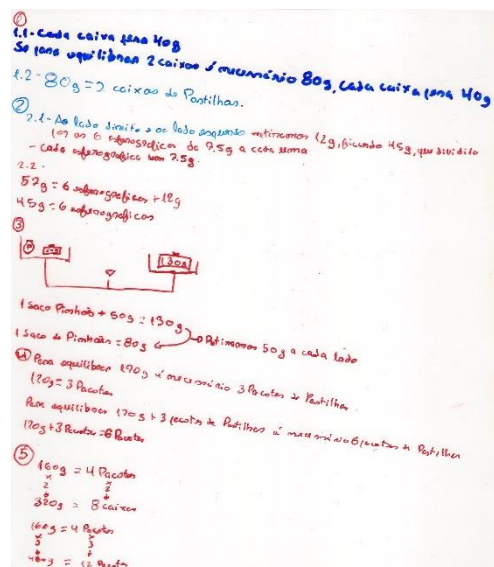 ①
1.1 - Cada caixa pesa 40g
Se para equilibrar 2 caixas é necessário 80g, cada caixa pesa 40g
1.2 - 80g = 2 caixas de Pastilhas.
②
2.1 - Ao lado direito e ao lado esquerdo retiramos 12g, ficando 45g, que dividido
por as 6 esferográficas dá 7.5g a cada uma
- cada esferográfica tem 7.5g.
2.2 -
57g = 6 esferográficas + 12g
45g = 6 esferográficas
③
130g
1 Saco Pinhões + 50g = 130g
1 Saco de Pinhões = 80g Retiramos 50g a cada lado
④ Para equilibrar 120g é necessário 3 Pacotes de Pastilhas.
120g = 3 Pacotes
Para equilibrar 120g + 3 pacotes de Pastilhas é necessário 6 pacotes de Pastilhas
120g + 3 Pacotes = 6 Pacotes
⑤
160g = 4 Pacotes
x x
2 2
320g = 8 caixas
160g = 4 Pacotes
x x
3 3
480g = 12 Pacotes